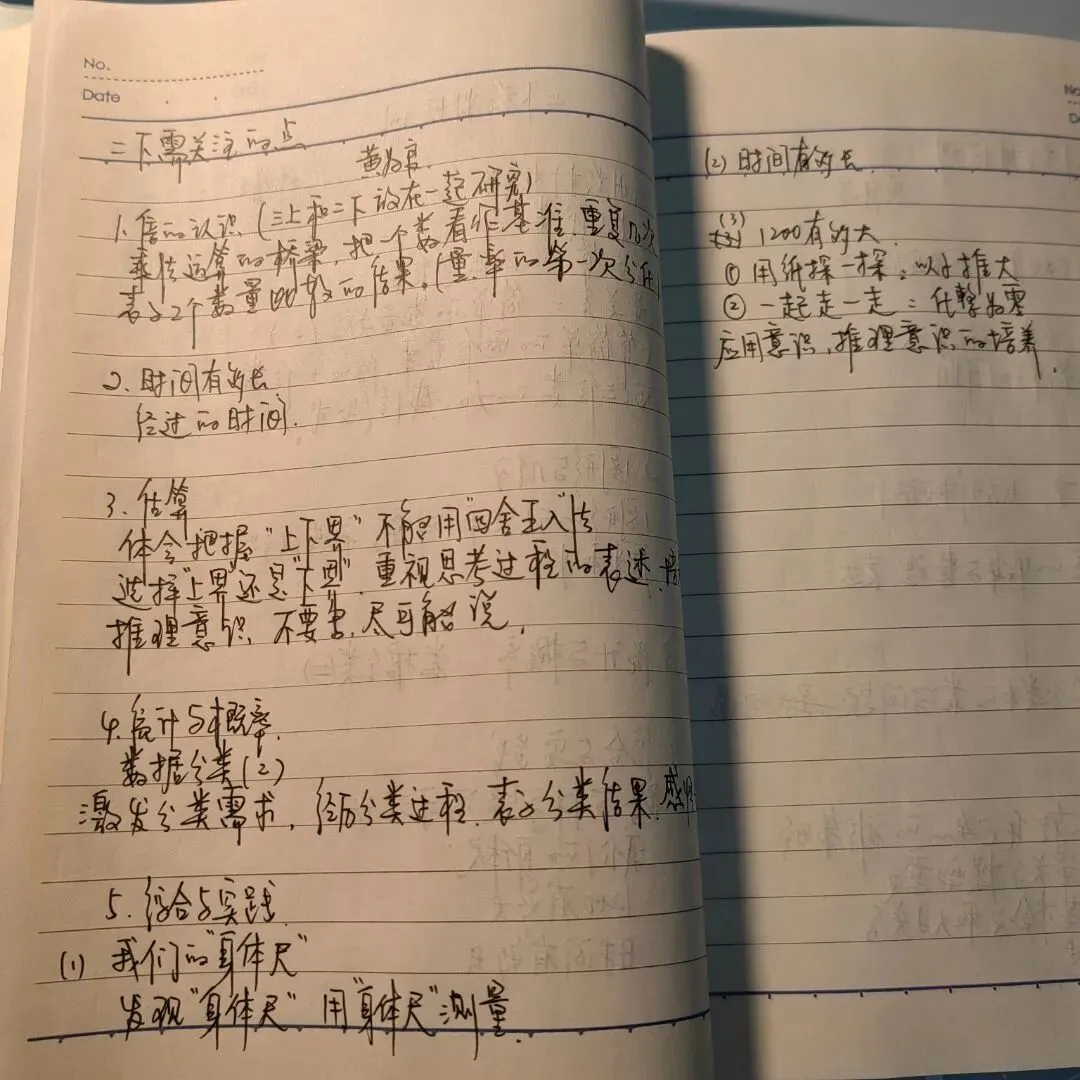 No.
Date
二下需关注的点
黄为良
1. 倍的认识（三上和二下放在一起研究）
乘法运算的桥梁，把一个数看作基准，重复几次
表示2个数量比较的结果。（量率的第一次分化
2. 时间有多长
经过的时间.
3. 估算
体会把握"上下界"不能用"四舍五入"法
选择"上界"还是"下界"，重视思考过程的表述，培
推理意识，不要书，尽可能说，
4. 统计与概率
数据分类(2)
激发分类需求，经历分类过程，表示分类结果，感悟
5. 综合与实践
(1) 我们的"身体尺"
发现"身体尺" 用"身体尺"测量.
No
Da
(2) 时间有多长
(3) 1200有多大
① 用纸探一探：以小推大
② 一起走一走：化整为零
应用意识，推理意识的培养.